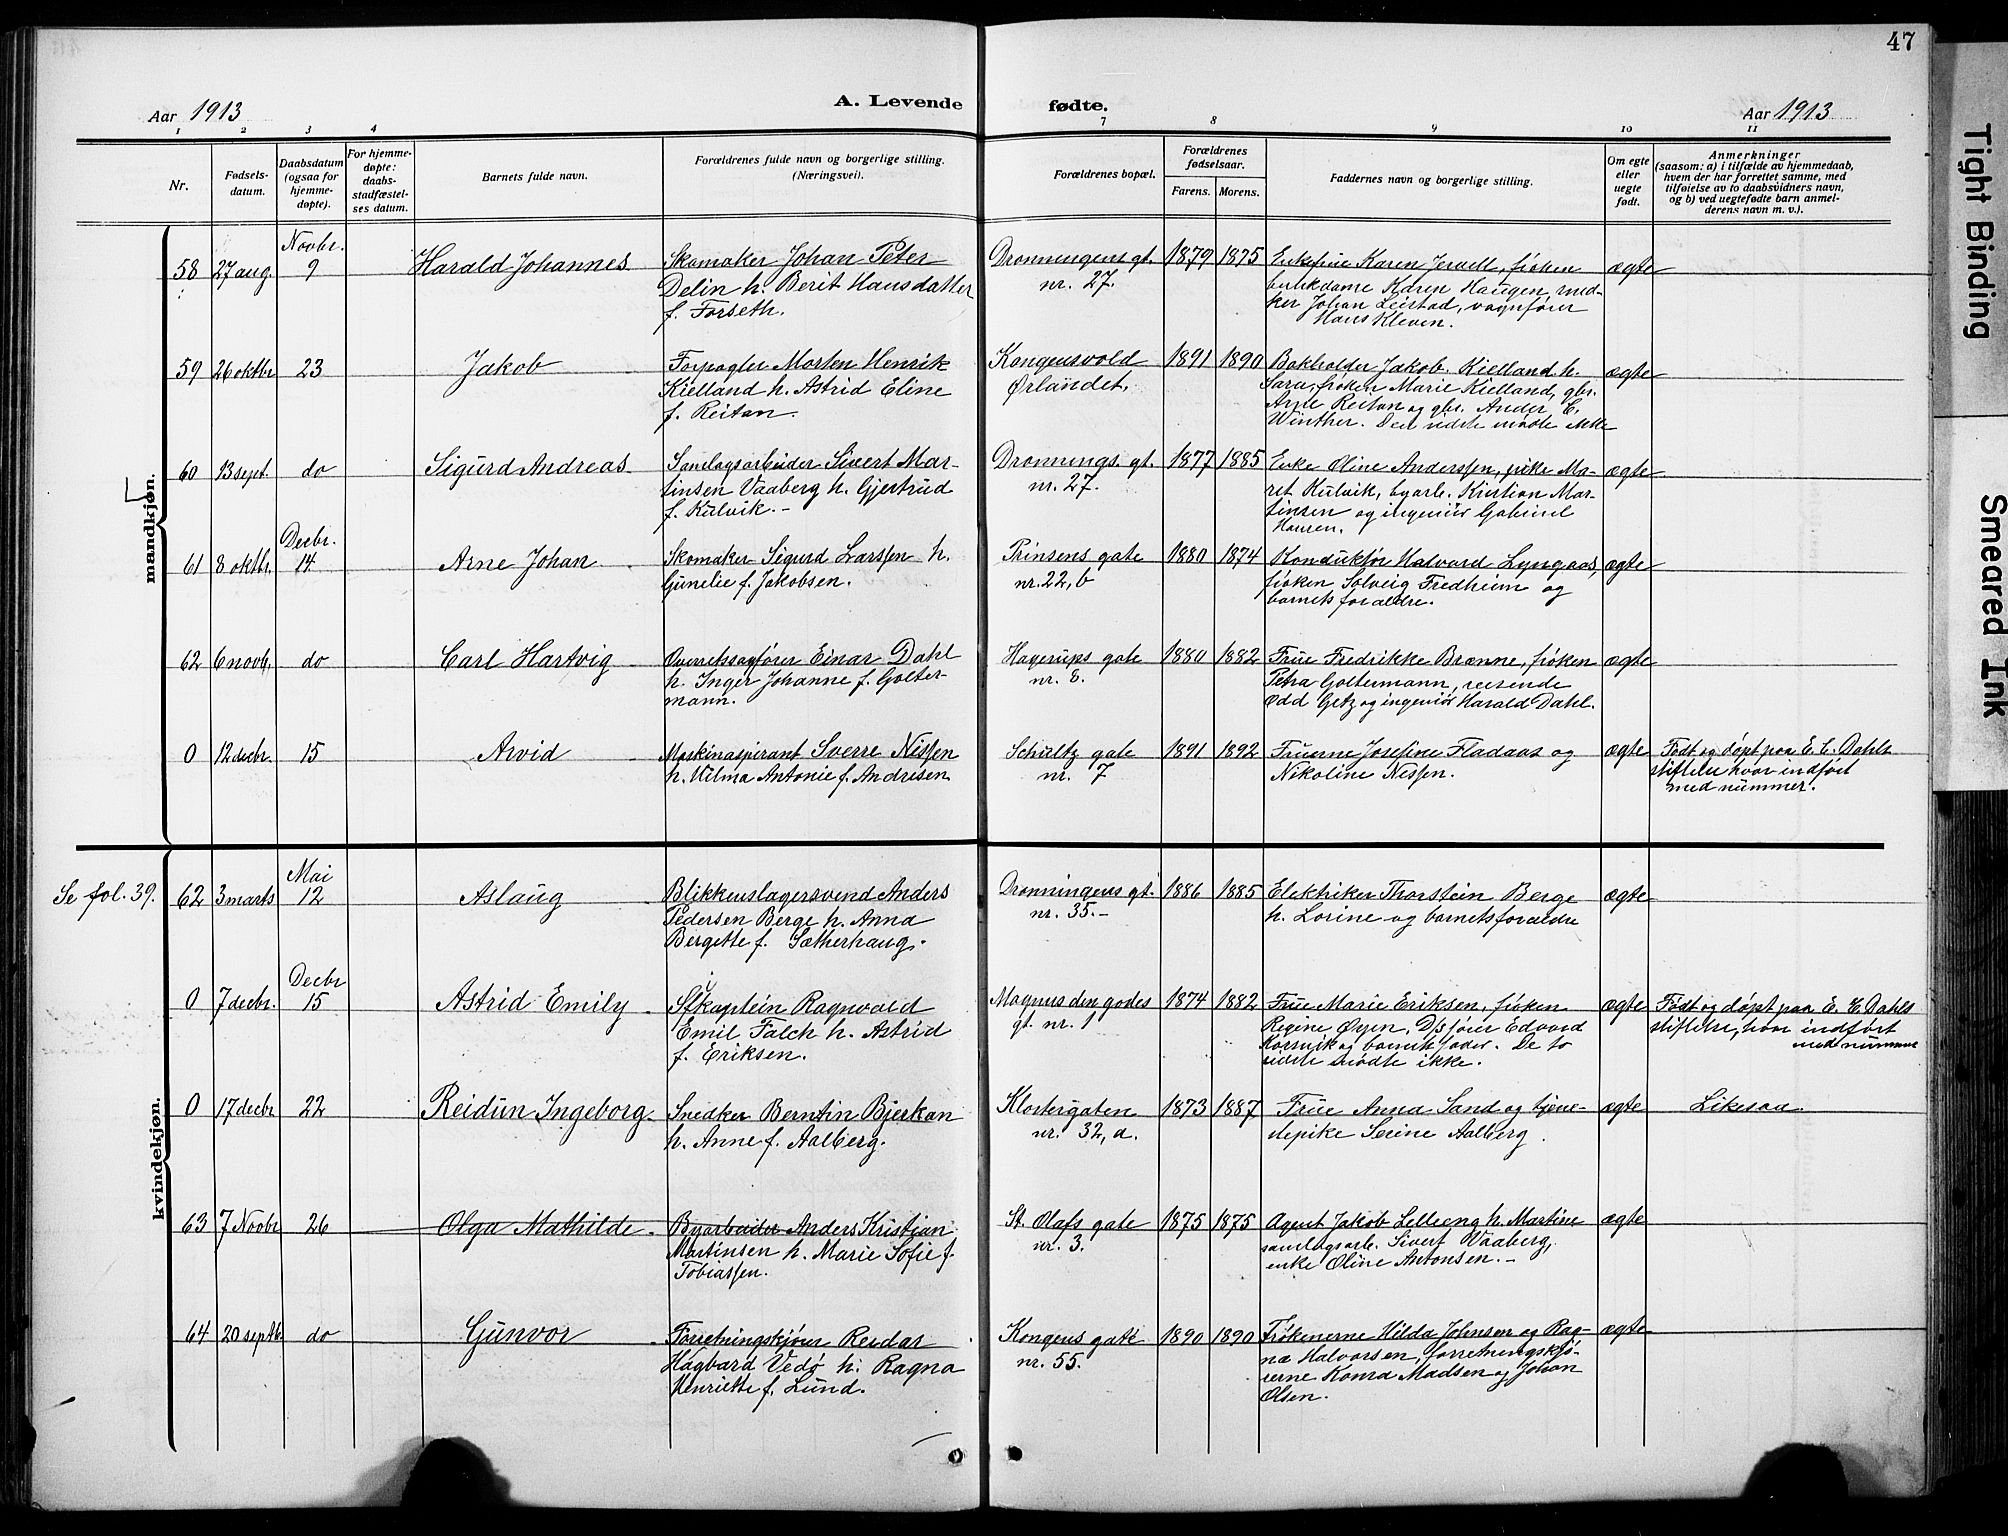 47
Aar 1913
A. Levende
fødte.
Aar 1913
1 2 3 4 7 8 9 10 11
Nr.
Fødsels-
datum.
Daabsdatum
(ogsaa for
hjemme-
døpte).
For hjemme-
døpte:
daabs-
stadfæstel-
ses datum.
Barnets fulde navn.
Forældrenes fulde navn og borgerlige stilling.
(Næringsvei).
Forældrenes bopæl.
Forældrenes
fødselsaar.
Farens. Morens.
Faddernes navn og borgerlige stilling.
Om egte
eller
uegte
født.
Anmerkninger
(saasom: a) i tilfælde av hjemmedaab,
hvem der har forrettet samme, med
tilføielse av to daabsvidners navn,
og b) ved uegtefødte barn anmel-
derens navn m. v.).
mandkjøn.
58 27 aug. Novbr. 9 Harald Johannes
Skomaker Johan Peter
Delin h. Berit Hansdatter
f. Forseth.
Dronningens gt.
nr. 27.
1879 1875
Enkefrue Karen Jervell, frøken
butikdame Karen Haugen, sned-
ker Johan Leistad, vognfører
Hans Kleven.
ægte
59 26 oktbr 23 Jakob
Forpagter Morten Henrik
Kielland h. Astrid Eline
f. Reitan.
Kongensvold
Ørlandet.
1891 1890
Bokholder Jakob Kielland h.
Sara, frøken Marie Kielland, gbr.
Arne Reitan og gbr. Ander E.
Winther. Den sidste møtte ikke
ægte
60 13 sept. do Sigurd Andreas
Samlagsarbeider Sivert Mar-
tinsen Vaaberg h. Gjertrud
f. Kulvik. -
Dronnings. gt.
nr. 27.
1877 1885
Enke Oline Anderssen, pike Ma-
ret Kulvik, byarb. Kristian Mar-
tinsen og ingeniør Gabriel
ægte
61 8 oktbr. Decbr. 14 Arne Johan
Skomaker Sigurd Larssen h.
Gunelie f. Jakobsen.
Prinsens gate
nr. 22, b
1880 1874
Konduktør Halvard Lyngaas,
frøken Solveig Fredheim og
barnets forældre.
ægte
62 6 novb. do Carl Hartvig
Overretssagfører Einar Dahl
h. Inger Johanne f. Golter-
mann.
Hagerups gate
nr. 8.
1880 1882
Frue Fredrikke Brænne, frøken
Petra Goltermann, reisende
Odd Getz og ingeniør Harald Dahl.
ægte
0 12 decbr. 15 Arvid
Maskinaspirant Sverre Nissen
h. Vilma Antonie f. Andrisen
Schultz gate
nr. 7
1891 1892
Fruerne Josefine Fladaas og
Nikoline Nissen.
ægte
Født og døpt paa E. C. Dahls
stiftelse hvor indført
med nummer.
kvindekjøn.
Se fol. 39. 62 3 marts Mai 12 Aslaug
Blikkenslagersvend Anders
Pedersen Berge h. Anna
Bergette f. Sætherhaug.
Dronningens gt.
nr. 35. -
1886 1885
Elektriker Thorstein Berge
h. Lorine og barnets forældre
ægte
0 7 decbr. Decbr 15 Astrid Emily
Stkaptein Ragnvald
Emil Falch h. Astrid
f. Eriksen.
Magnus den godes
gt. nr. 1
1874 1882
Frue Marie Eriksen, frøken
Regine Øyen, D/sfører Edvard
Korsvik og barnets fader. De to
sidste mødte ikke.
ægte
Født og døpt paa E. C. Dahls
stiftelse, hvor indført
med nummer
0 17 decbr 22 Reidun Ingeborg
Snedker Berntin Bjerkan
h. Anne f. Aalberg.
Klostergaten
nr. 32, a.
1873 1887
Frue Anna Sand og tjene-
stepike Serine Aalberg.
ægte
Likesaa.
63 7 Novbr 26 Olga Mathilde
Byarbeider Anders Kristian
Martinsen h. Marie Sofie f.
Tobiassen.
St. Olafs gate
nr. 3.
1875 1875
Agent Jakob Lelleeng h. Martine
samlagsarb. Sivert Vaaberg,
enke Oline Antonsen. -
ægte
64 20 septb. do Gunvor
Forretningskjører Reidar
Hagbard Vedø h. Ragna
Henriette f. Lund.
Kongens gate
nr. 55.
1890 1890
Frøkenerne Hilda Johnsen og Rag-
na Halvorsen, forretningskjø-
rerne Konrad Madsen og Johan
Olsen.
ægte
Tight Binding
Smeared Ink